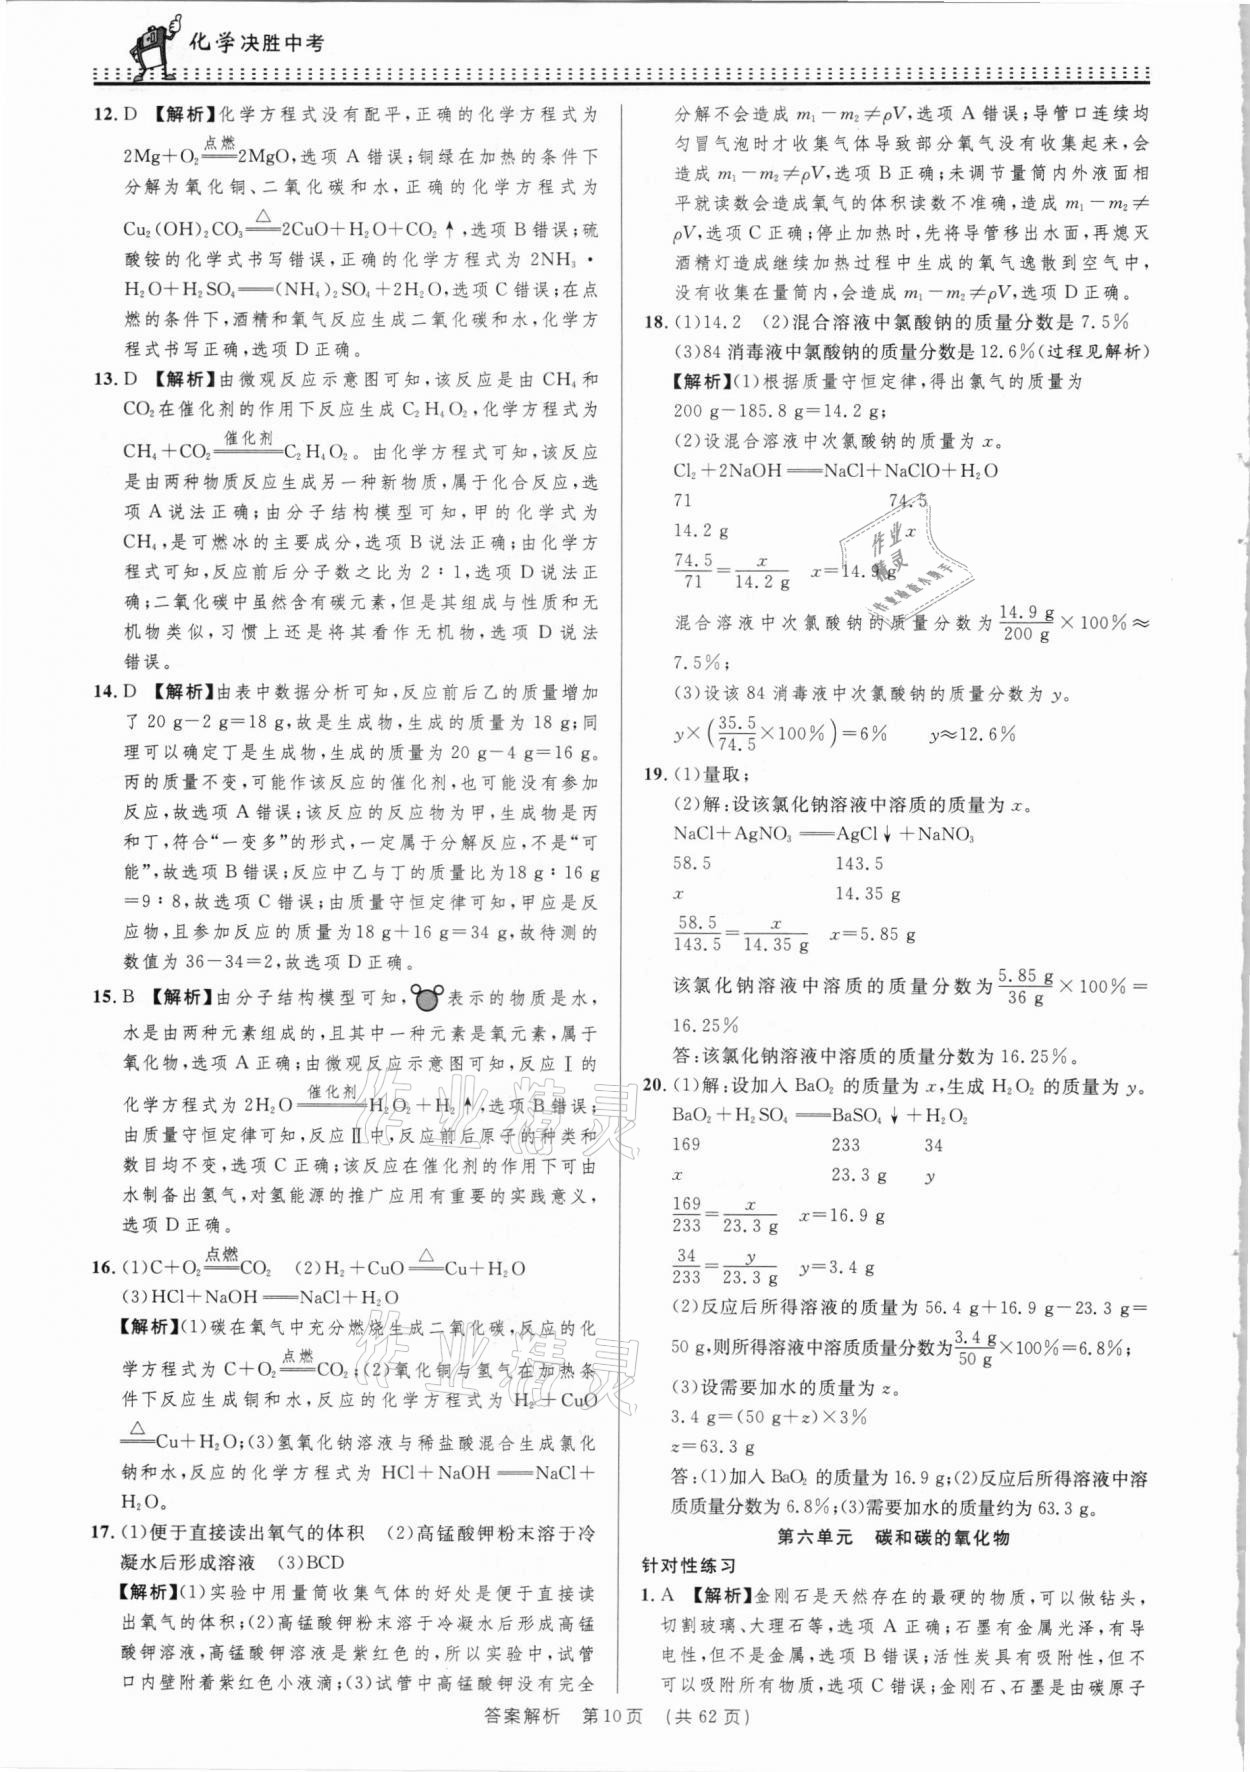 化学决胜中考
12. D 【解析】化学方程式没有配平,正确的化学方程式为
2Mg+O₂ 点燃══ 2MgO,选项 A 错误;铜绿在加热的条件下
分解为氧化铜、二氧化碳和水,正确的化学方程式为
Cu₂(OH)₂CO₃ △══ 2CuO+H₂O+CO₂↑,选项 B 错误;硫
酸铵的化学式书写错误,正确的化学方程式为 2NH₃·
H₂O+H₂SO₄══(NH₄)₂SO₄+2H₂O,选项 C 错误;在点
燃的条件下,酒精和氧气反应生成二氧化碳和水,化学方
程式书写正确,选项 D 正确。
13. D 【解析】由微观反应示意图可知,该反应是由 CH₄ 和
CO₂在催化剂的作用下反应生成 C₂H₄O₂,化学方程式为
CH₄+CO₂ 催化剂══ C₂H₄O₂。由化学方程式可知,该反应
是由两种物质反应生成另一种新物质,属于化合反应,选
项 A 说法正确;由分子结构模型可知,甲的化学式为
CH₄,是可燃冰的主要成分,选项 B 说法正确;由化学方
程式可知,反应前后分子数之比为 2∶1,选项 C 说法正
确;二氧化碳中虽然含有碳元素,但是其组成与性质和无
机物类似,习惯上还是将其看作无机物,选项 D 说法
错误。
14. D 【解析】由表中数据分析可知,反应前后乙的质量增加
了 20 g−2 g=18 g,故是生成物,生成的质量为 18 g;同
理可以确定丁是生成物,生成的质量为 20 g−4 g=16 g。
丙的质量不变,可能作该反应的催化剂,也可能没有参加
反应,故选项 A 错误;该反应的反应物为甲,生成物是丙
和丁,符合“一变多”的形式,一定属于分解反应,不是“可
能”,故选项 B 错误;反应中乙与丁的质量比为18 g∶16 g
=9∶8,故选项 C 错误;由质量守恒定律可知,甲应是反
应物,且参加反应的质量为18 g+16 g=34 g,故待测的
数值为 36−34=2,故选项 D 正确。
15. B 【解析】由分子结构模型可知,表示的物质是水,
水是由两种元素组成的,且其中一种元素是氧元素,属于
氧化物,选项 A 正确;由微观反应示意图可知,反应Ⅰ的
化学方程式为 2H₂O 催化剂══ H₂O₂+H₂↑,选项 B 错误;
由质量守恒定律可知,反应Ⅱ中,反应前后原子的种类和
数目均不变,选项 C 正确;该反应在催化剂的作用下可由
水制备出氢气,对氢能源的推广应用有重要的实践意义,
选项 D 正确。
16. (1)C+O₂ 点燃══ CO₂ (2)H₂+CuO △══ Cu+H₂O
(3)HCl+NaOH══NaCl+H₂O
【解析】(1)碳在氧气中充分燃烧生成二氧化碳,反应的化
学方程式为 C+O₂ 点燃══ CO₂;(2)氧化铜与氢气在加热条
件下反应生成铜和水,反应的化学方程式为 H₂+CuO
△══ Cu+H₂O;(3)氢氧化钠溶液与稀盐酸混合生成氯化
钠和水,反应的化学方程式为 HCl+NaOH══NaCl+
H₂O。
17. (1)便于直接读出氧气的体积 (2)高锰酸钾粉末溶于冷
凝水后形成溶液 (3)BCD
【解析】(1)实验中用量筒收集气体的好处是便于直接读
出氧气的体积;(2)高锰酸钾粉末溶于冷凝水后形成高锰
酸钾溶液,高锰酸钾溶液是紫红色的,所以实验中,试管
口内壁附着紫红色小液滴;(3)试管中高锰酸钾没有完全
分解不会造成 m₁−m₂≠ρV,选项 A 错误;导管口连续均
匀冒气泡时才收集气体导致部分氧气没有收集起来,会
造成 m₁−m₂≠ρV,选项 B 正确;未调节量筒内外液面相
平就读数会造成氧气的体积读数不准确,造成 m₁−m₂≠
ρV,选项 C 正确;停止加热时,先将导管移出水面,再熄灭
酒精灯造成继续加热过程中生成的氧气逸散到空气中,
没有收集在量筒内,会造成 m₁−m₂≠ρV,选项 D 正确。
18. (1)14.2 (2)混合溶液中次氯酸钠的质量分数是 7.5%
(3)84 消毒液中次氯酸钠的质量分数是 12.6%(过程见解析)
【解析】(1)根据质量守恒定律,得出氯气的质量为
200 g−185.8 g=14.2 g;
(2)设混合溶液中次氯酸钠的质量为 x。
Cl₂+2NaOH══NaCl+NaClO+H₂O
71 74.5
14.2 g x
74.5/71=x/14.2 g x=14.9 g
混合溶液中次氯酸钠的质量分数为 14.9 g/200 g×100%≈
7.5%;
(3)设该 84 消毒液中次氯酸钠的质量分数为 y。
y×(35.5/74.5×100%)=6% y≈12.6%
19. (1)量取;
(2)解:设该氯化钠溶液中溶质的质量为 x。
NaCl+AgNO₃══AgCl↓+NaNO₃
58.5 143.5
x 14.35 g
58.5/143.5=x/14.35 g x=5.85 g
该氯化钠溶液中溶质的质量分数为 5.85 g/36 g×100%=
16.25%
答:该氯化钠溶液中溶质的质量分数为 16.25%。
20. (1)解:设加入 BaO₂ 的质量为 x,生成 H₂O₂ 的质量为 y。
BaO₂+H₂SO₄══BaSO₄↓+H₂O₂
169 233 34
x 23.3 g y
169/233=x/23.3 g x=16.9 g
34/233=y/23.3 g y=3.4 g
(2)反应后所得溶液的质量为 56.4 g+16.9 g−23.3 g=
50 g,则所得溶液中溶质质量分数为 3.4 g/50 g×100%=6.8%;
(3)设需要加水的质量为 z。
3.4 g=(50 g+z)×3%
z=63.3 g
答:(1)加入 BaO₂ 的质量为 16.9 g;(2)反应后所得溶液中溶
质质量分数为 6.8%;(3)需要加水的质量约为 63.3 g。
第六单元 碳和碳的氧化物
针对性练习
1. A 【解析】金刚石是天然存在的最硬的物质,可以做钻头,
切割玻璃、大理石等,选项 A 正确;石墨有金属光泽,有导
电性,但不是金属,选项 B 错误;活性炭具有吸附性,但不
可能吸附所有物质,选项 C 错误;金刚石、石墨是由碳原子
答案解析 第 10 页 (共 62 页)
作业精灵
作业精灵
作业精灵